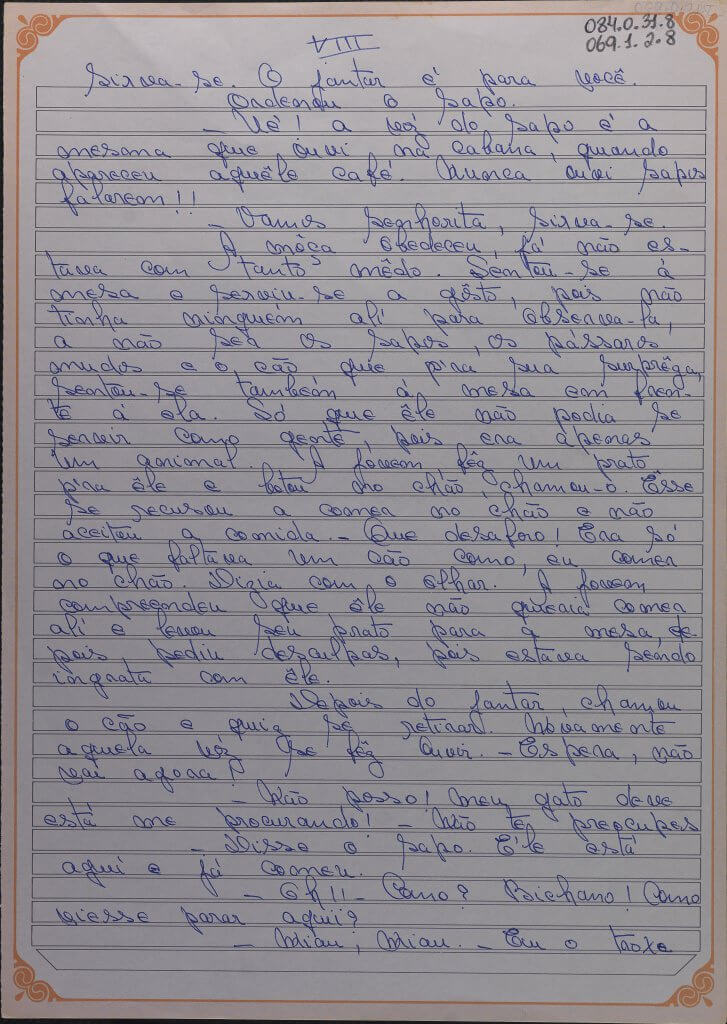 084.0.31.8
069.1.2.8
VIII
Sirva-se. O jantar é para você.
Ordenou o sapo.
- Vê! a vóz do sapo é a
mesma que ouvi na cabana, quando
apareceu aquêle café. Nunca ouvi sapos
falarem!!
- Vamos senhorita, sirva-se.
A môça obedeceu, já não es-
tava com tanto mêdo. Sentou-se à
mesa e serviu-se a gôsto, pois não
tinha ninguém ali para observa-la,
a não ser os sapos, os pássaros
mudos e o cão que p'ra sua surprêza,
sentou-se também à mesa em fren-
te à ela. Só que êle não podia se
servir como gente, pois era apenas
um animal. A jovem fêz um prato
p'ra êle e botou no chão, chamou-o. Êsse
se recusou a comer no chão e não
aceitou a comida. - Que desaforo! Era só
o que faltava um cão como, eu comer
no chão. Dizia com o olhar. A jovem
compreendeu que êle não queria comer
ali e levou seu prato para a mesa, de-
pois pediu desculpas, pois estava sendo
ingrata com êle.
Depois do jantar, chamou
o cão e quiz se retirar. Novamente
aquela vóz se fêz ouvir. - Espera, não
vai agora?
- Não posso! Meu gato deve
está me procurando! - Não te preocupes
- Disse o sapo. Êle está
aqui e já comeu.
- Oh!! - Como? Bichano! Como
viesse parar aqui?
- Miau, Miau. - Eu o troxe